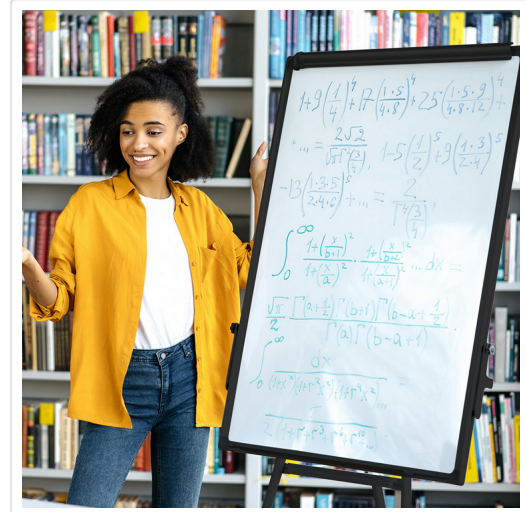 1+9(1/4)^4+17(1·5/4·8)^4+25(1·5·9/4·8·12)^4+
...=2√2/(√π Γ²(3/4)), 1-5(1/2)^5+9(1·3/2·4)^5
-13(1·3·5/2·4·6)^5+...=2/Γ^4(3/4),
∫_0^∞ (1+(x/(b+1))^2)/(1+(x/a)^2) · (1+(x/(b+2))^2)/(1+(x/(a+1))^2) ... dx =
√π/2 Γ(a+1/2)Γ(b+1)Γ(b-a+1/2)/(Γ(a)Γ(b-a+1)).
∫_0^∞ dx/((1+x^2)(1+r^2x^2)(1+r^4x^2)... =
π/(2(1+r+r^3+r^6+r^10+...)